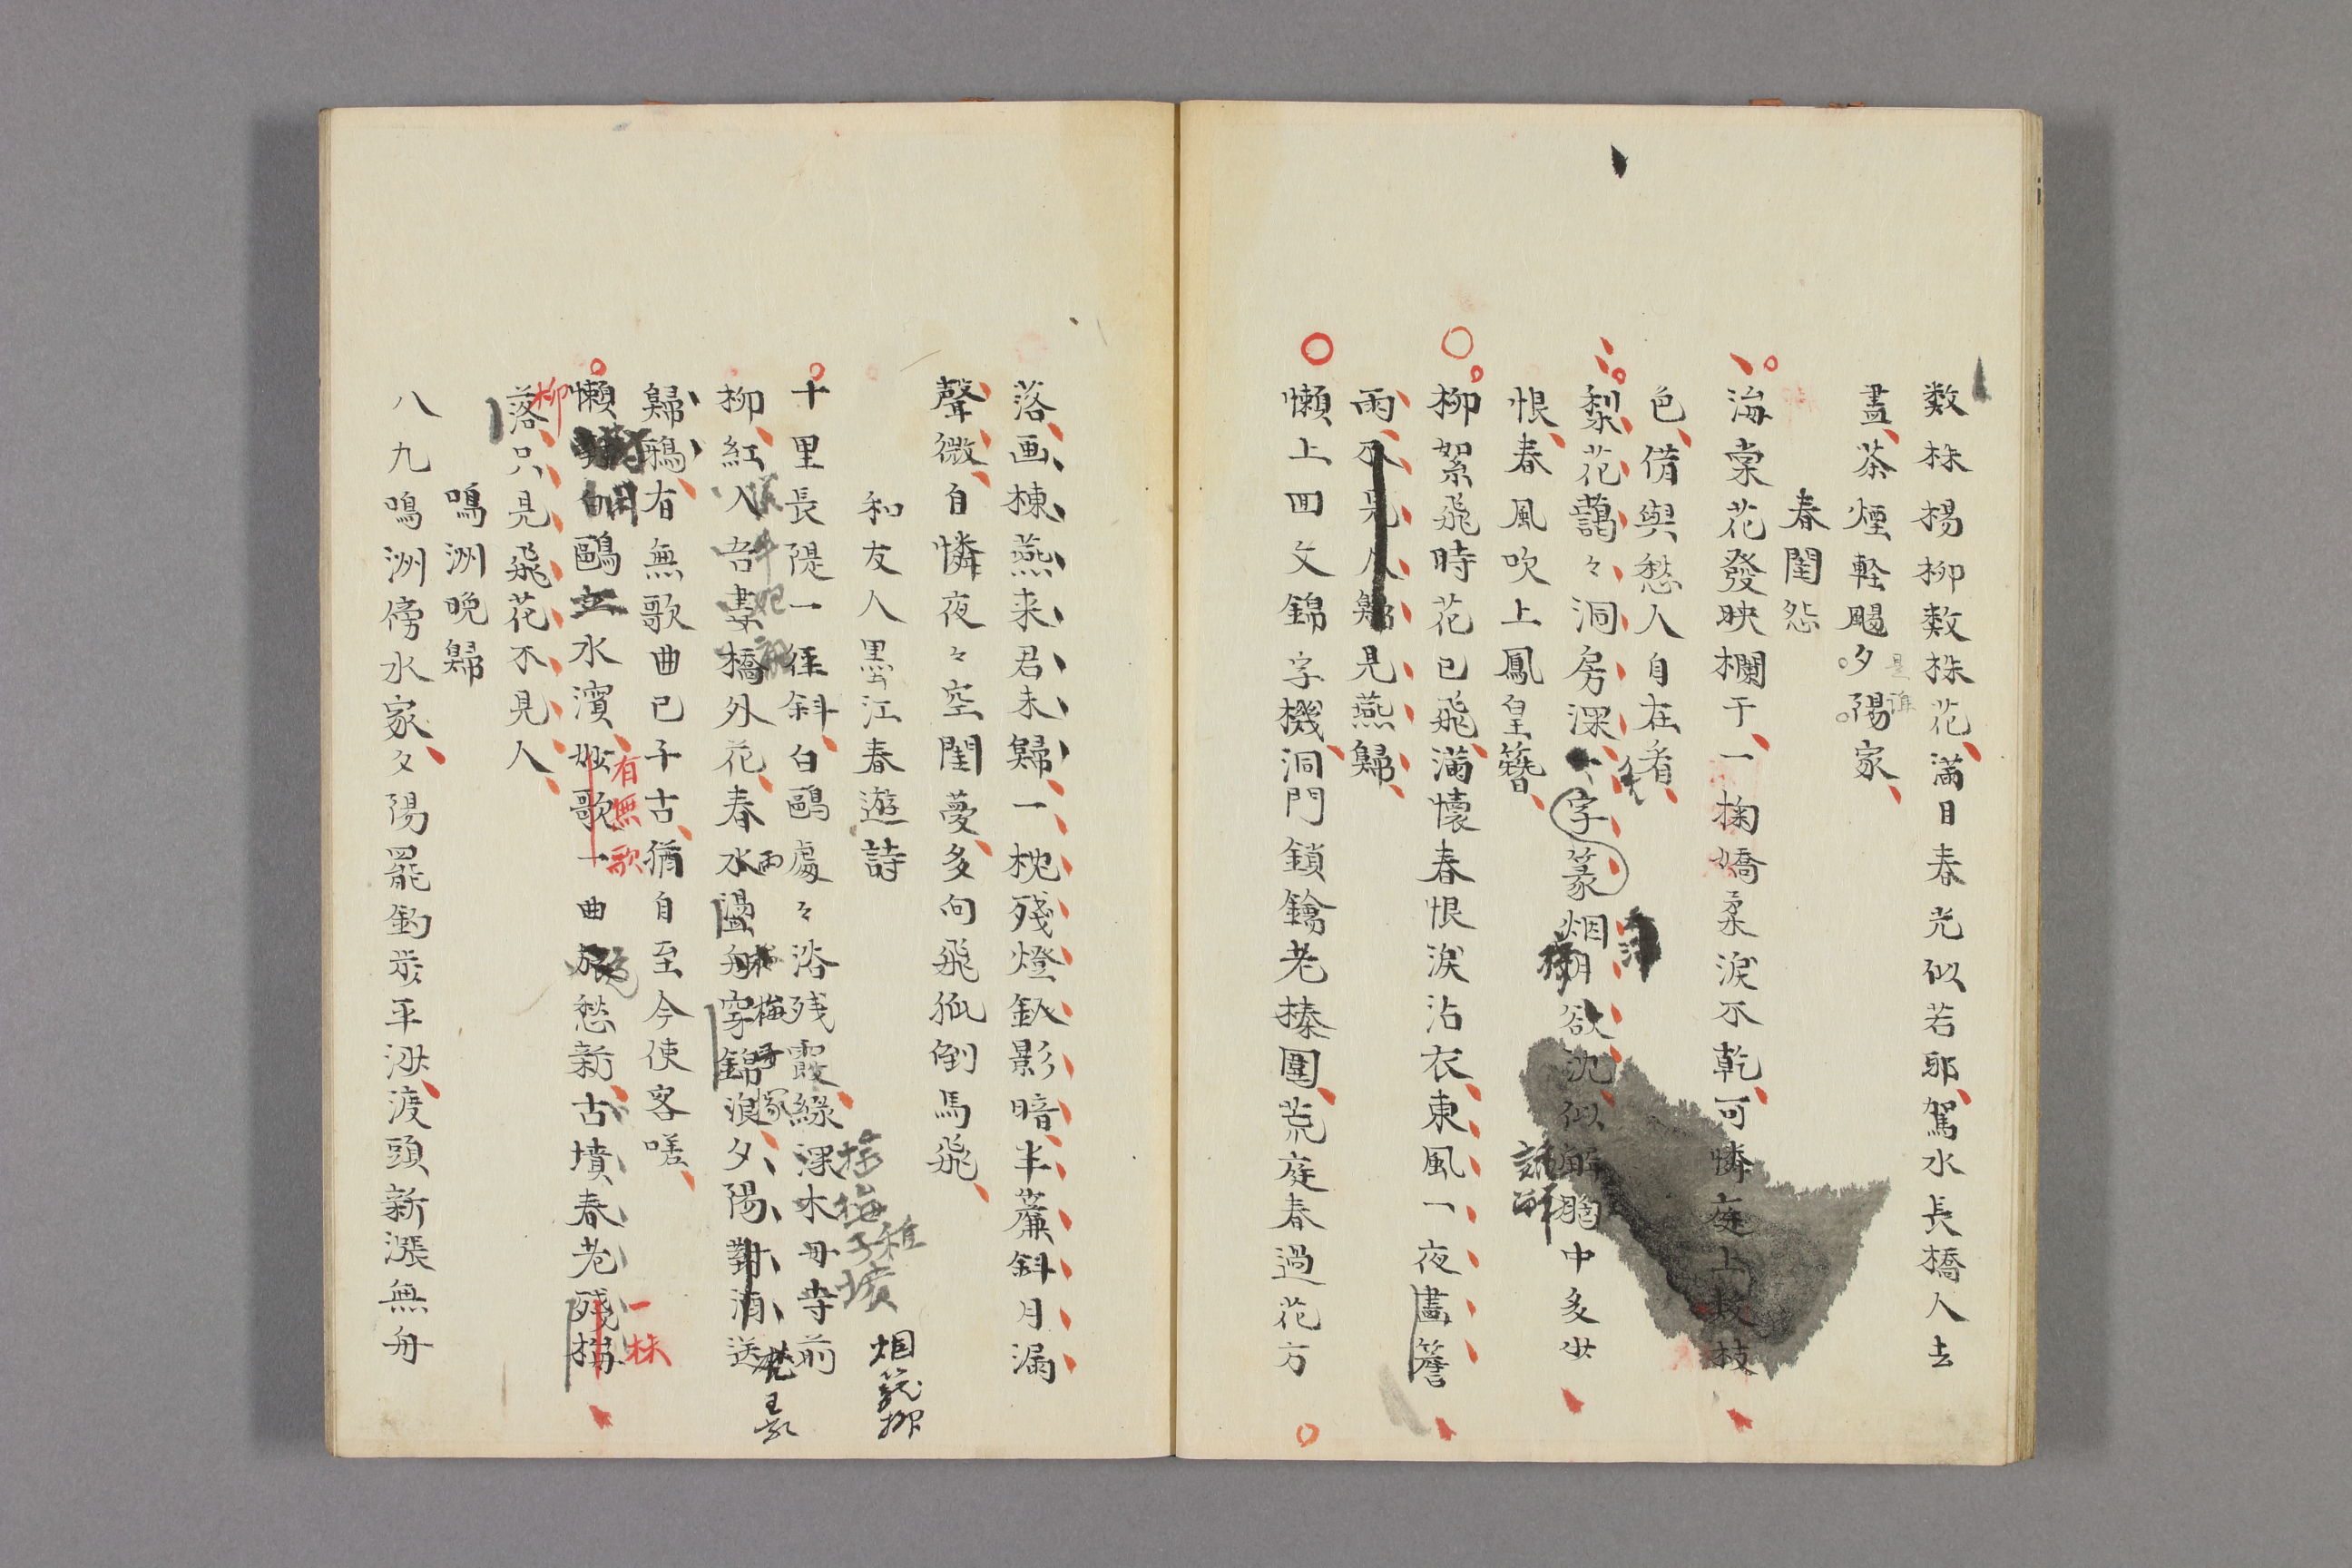 数株楊柳数株花満目春光似若耶駕水長橋人去
盡茶煙軽颺夕陽家
是誰
春閨怨
海棠花發映欄干一掬嬌柔涙不乾可憐庭上数枝
色偕與愁人自在看
梨花藹々洞房深字篆烟欲沈似解胸中多少
恨春風吹上鳳皇簪
柳絮飛時花已飛満懐春恨涙沾衣東風一夜畫簷
雨不見人歸見燕歸
懶上回文錦字機洞門鎖鑰老榛圍荒庭春過花方
落画棟燕来君未歸一枕殘燈釵影暗半簾斜月漏
聲微自憐夜々空閨夢多向飛狐倒馬飛
和友人墨江春遊詩
十里長隄一徑斜白鷗處々浴残霞緑深木母寺前
梅稚子墳
烟籠柳
柳紅入吾妻橋外花春水舟穿錦浪夕陽對酒送
雨
梅子塚
歸鴉有無歌曲已千古猶自至今使客嗟
懶白鷗水濱歌一曲愁新古墳春老殘楊
有無歌
一株
柳
落只見飛花不見人
鳴洲晩歸
八九鳴洲傍水家夕陽罷釣歩平沙渡頭新漲無舟